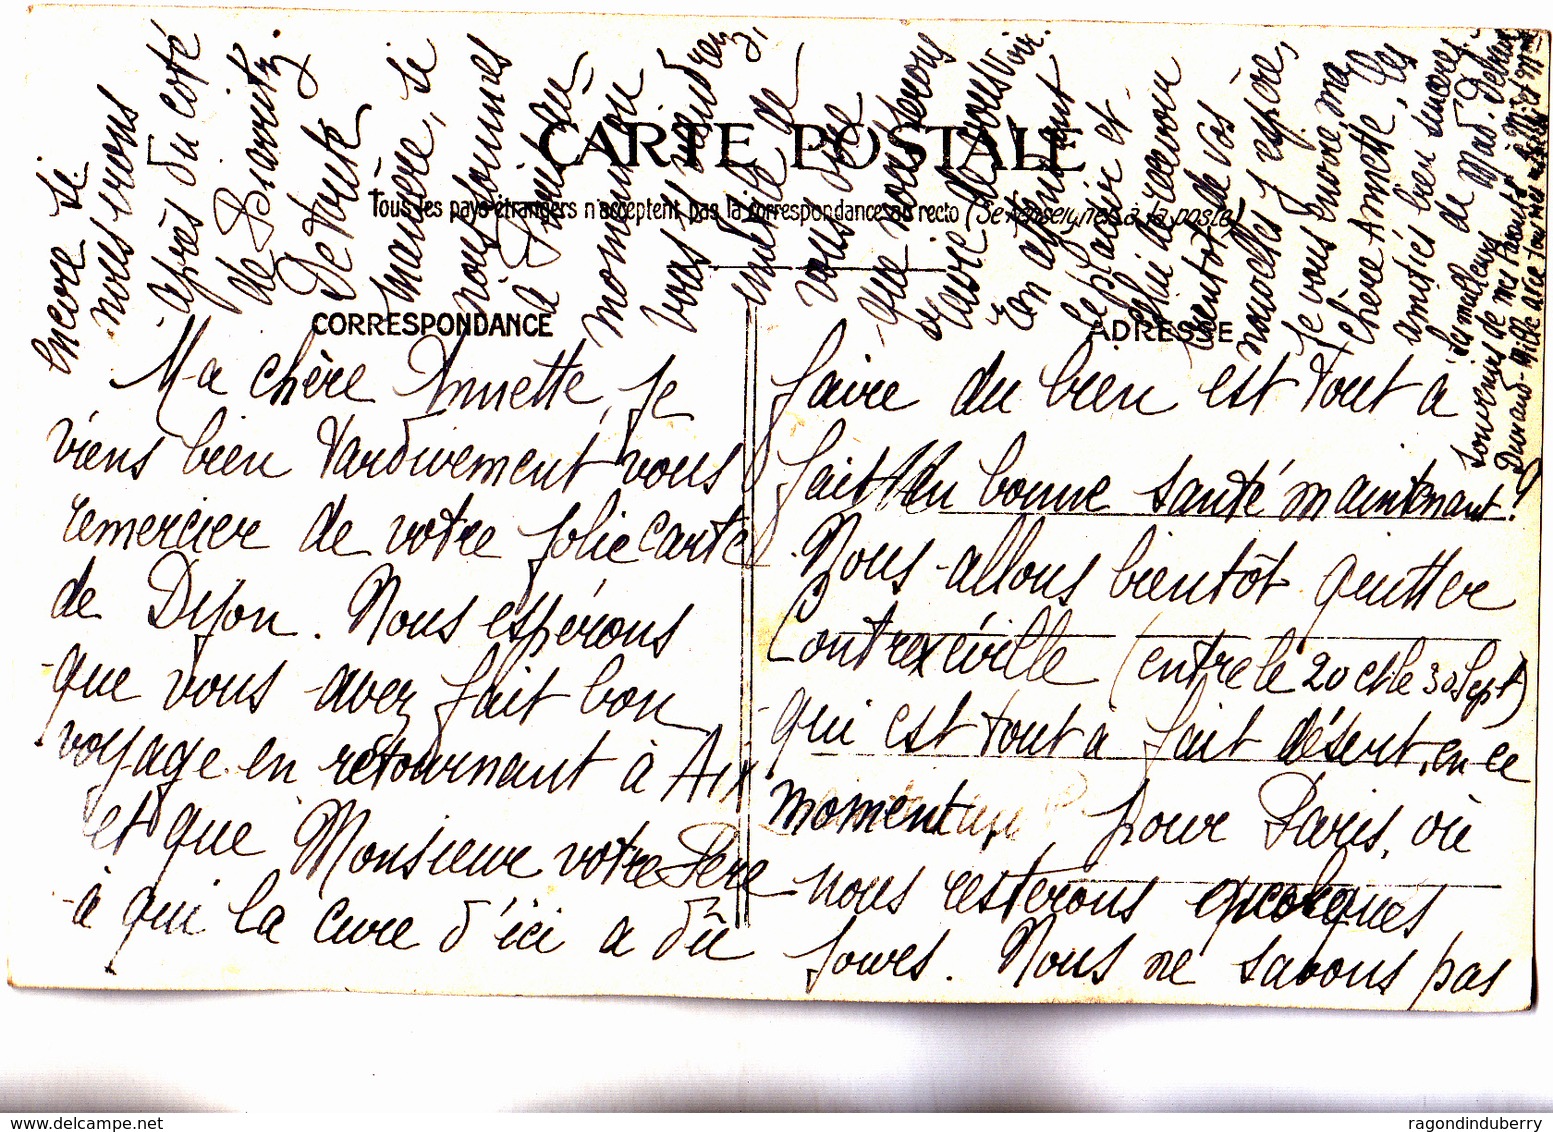 CARTE POSTALE
Tous les pays étrangers n'acceptent pas la correspondance au recto (Se renseigner à la poste)
CORRESPONDANCE
ADRESSE
Ma chère Annette, je
viens bien tardivement vous
remercier de votre jolie carte
de Dijon. Nous espérons
que vous avez fait bon
voyage en retournant à Aix
et que Monsieur votre Père
à qui la cure d'ici a dû
faire du bien est tout à
fait en bonne santé maintenant!
Nous allons bientôt quitter
Contrexéville (entre le 20 et le 30 Sept)
qui est tout a fait désert, en ce
moment pour Paris, où
nous resterons quelques
jours. Nous ne savons pas
encore si
nous irons
après du coté
de Biarritz.
De toute
manière, si
nous sommes
à
moment ou
vous viendrez,
vous dire
que nous serons
de vous voir.
En attendant
le plaisir et
celui de recevoir
bientôt de vos
nouvelles j'espère,
je vous envoie ma
chère Annette, les
amitiés bien sincères
de Mad. Debaux
souvenirs de mes parents à M. et Mme
Durand